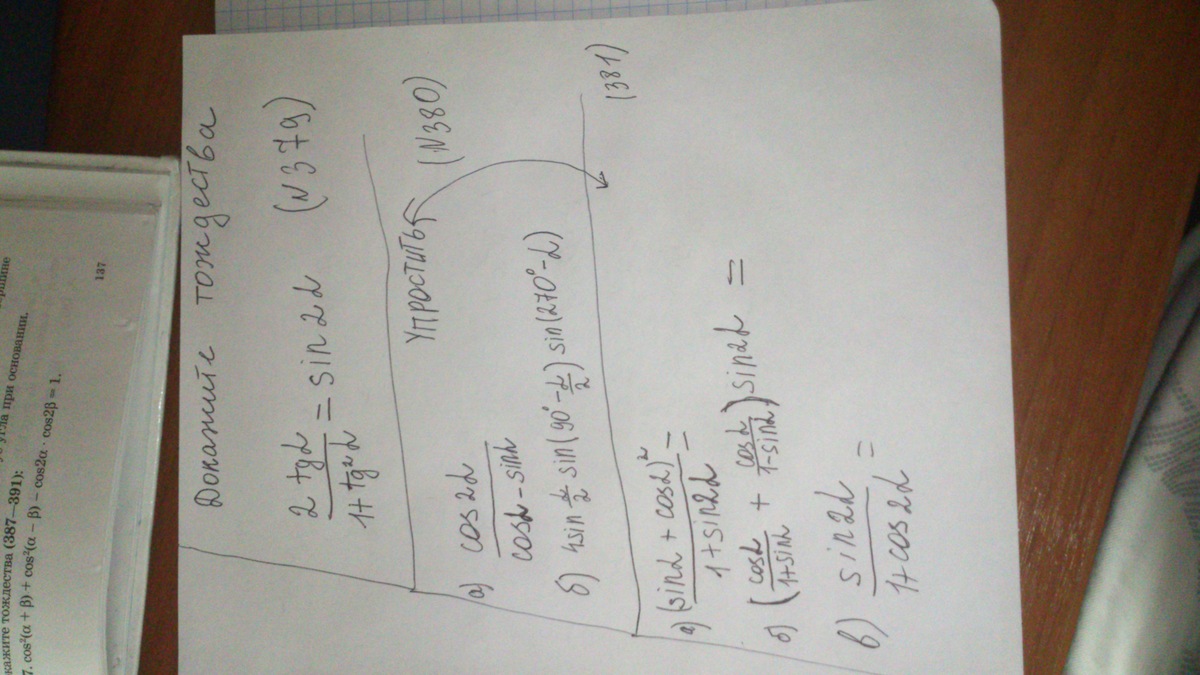 137
угла при основании.
кажите тождества (387—391):
7. cos²(α + β) + cos²(α − β) − cos2α · cos2β = 1.
Докажите тождества
2 tgα / 1+tg²α = sin 2α (N379)
Упростить (N380)
а) cos2α / cosα − sinα
б) 4sin α/2 sin(90°−α/2) sin(270°−α)
(381)
а) (sinα + cosα)² / 1+sin2α =
б) (cosα / 1+sinα + cosα / 1−sinα) sin2α =
в) sin2α / 1+cos2α =